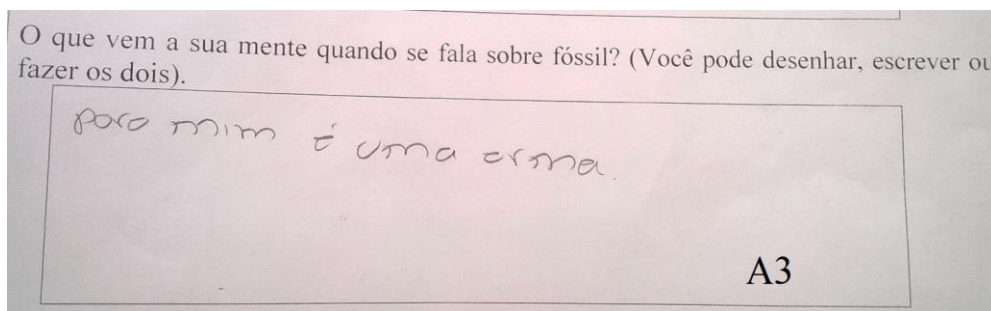 O que vem a sua mente quando se fala sobre fóssil? (Você pode desenhar, escrever ou
fazer os dois).
para mim é uma arma.
A3